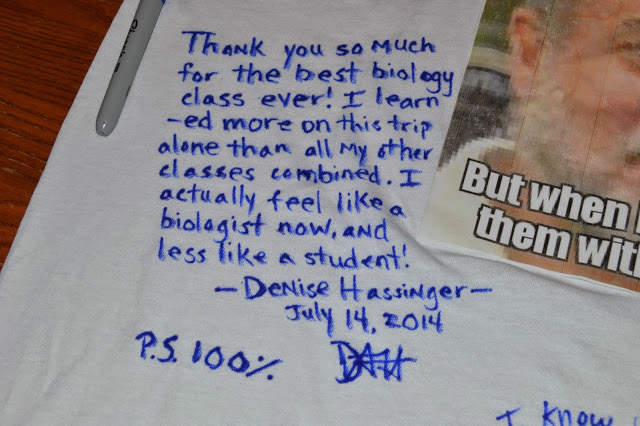 Thank you so much
for the best biology
class ever! I learn
-ed more on this trip
alone than all my other
classes combined. I
actually feel like a
biologist now, and
less like a student!
—Denise Hassinger—
July 14, 2014
P.S. 100%
But when
them with
I know